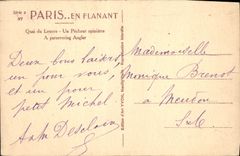 PARIS...EN FLANANT
Quai du Louvre - Un Pêcheur opiniâtre
A persevering Angler
Deux bons baisers
un pour vous
et un pour
petit Michel
Mademoiselle
Monique Brenot
à Meudon
S et O